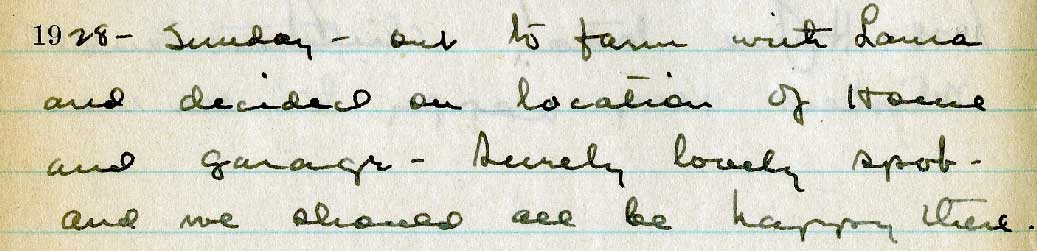 1928 - Sunday - out to farm with Laura
and decided on location of Home
and garage - Surely lovely spot -
and we should all be happy there.